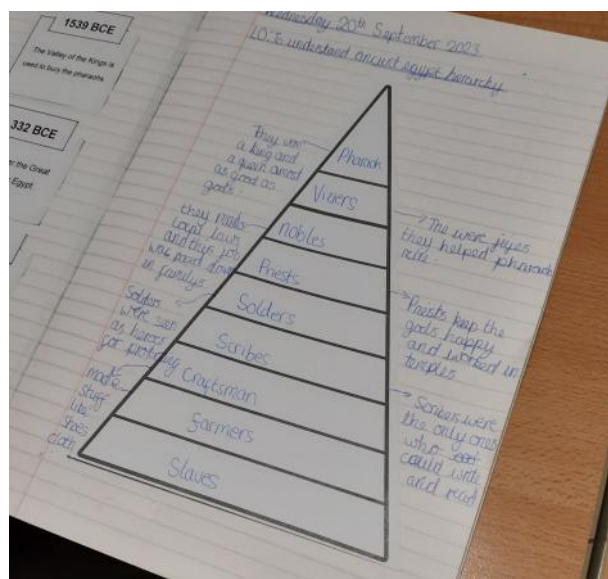 1539 BCE
The Valley of the Kings is
used to bury the pharaohs
332 BCE
the Great
Egypt.
Wednesday 20th September 2023
LO: To understand ancient egypt hierarchy
Pharaoh
Viziers
nobles
Priests
Solders
Scribes
Craftsman
Farmers
Slaves
They were
a king and
a queen
as good as
gods.
they made
local laws
and this job
was paed down
in familys
Solders
were seen
as heroes
for protecting
made
stuff
like
shoes
cloth
The were
they helped pharaoh
rule.
Priests keep the
gods happy
and worked in
temples
Scribes were
the only ones
who
could write
and read